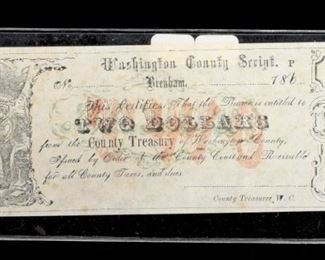 Washington County Script. P
No. Brenham. 186
This Certifies That the Bearer is entitled to
TWO DOLLARS
from the County Treasury of Washington County,
Issued by Order of the County Court and Receivable
for all County Taxes, and dues
County Treasurer W. C.